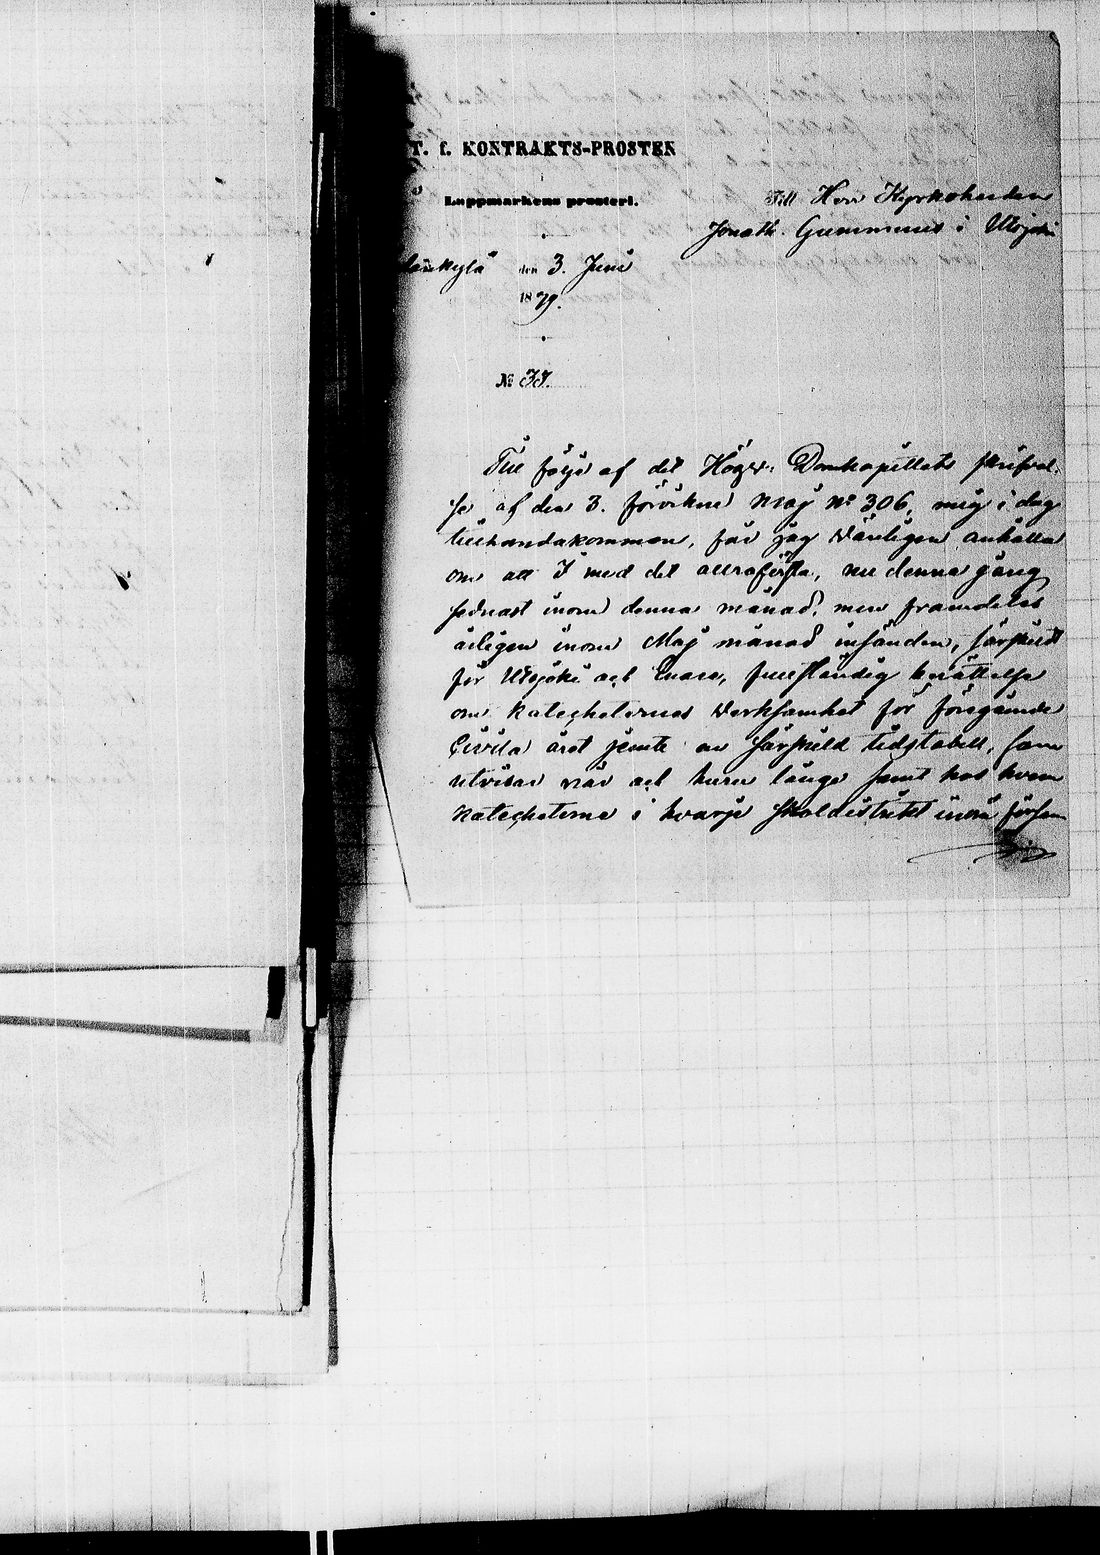 T. f. KONTRAKTS-PROSTEN
Lappmarkens prosteri.
Till Herr Kyrkoherden
Jonath. Gummerus i Utsjoki
den 3. Juni
1879.
№ 33.
Till följe af det Högv: Domkapitlets skrifvel-
se af den 3. förvikne Maj № 306, mig i dag
tillhandakommen, får jag vänligen anhålla
om att I med det allraförsta, nu denna gång
sednast inom denna månad, men framdeles
årligen inom Maj månad insänden, särskildt
för Utsjoki och Enare, fullständig berättelse
om Katecheternes verksamhet för föregående
Civila året jemte en särskild tidstabell, som
utvisar när och huru länge samt hos hvem
Katecheterne i hvarje skoldistrikt inom försam